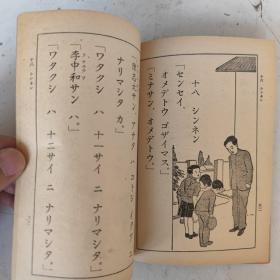 十八 シンネン
「センセイ、
オメデトウ ゴザイマス。」
「ミナサン、オメデトウ。」
サン アナタ ハ コトシ イクツ ニ
ナリマシタ カ。」
「ワタクシ ハ 十一サイ ニ ナリマシタ。」
「李中和サン ハ。」
「ワタクシ ハ 十二サイ ニ ナリマシタ。」